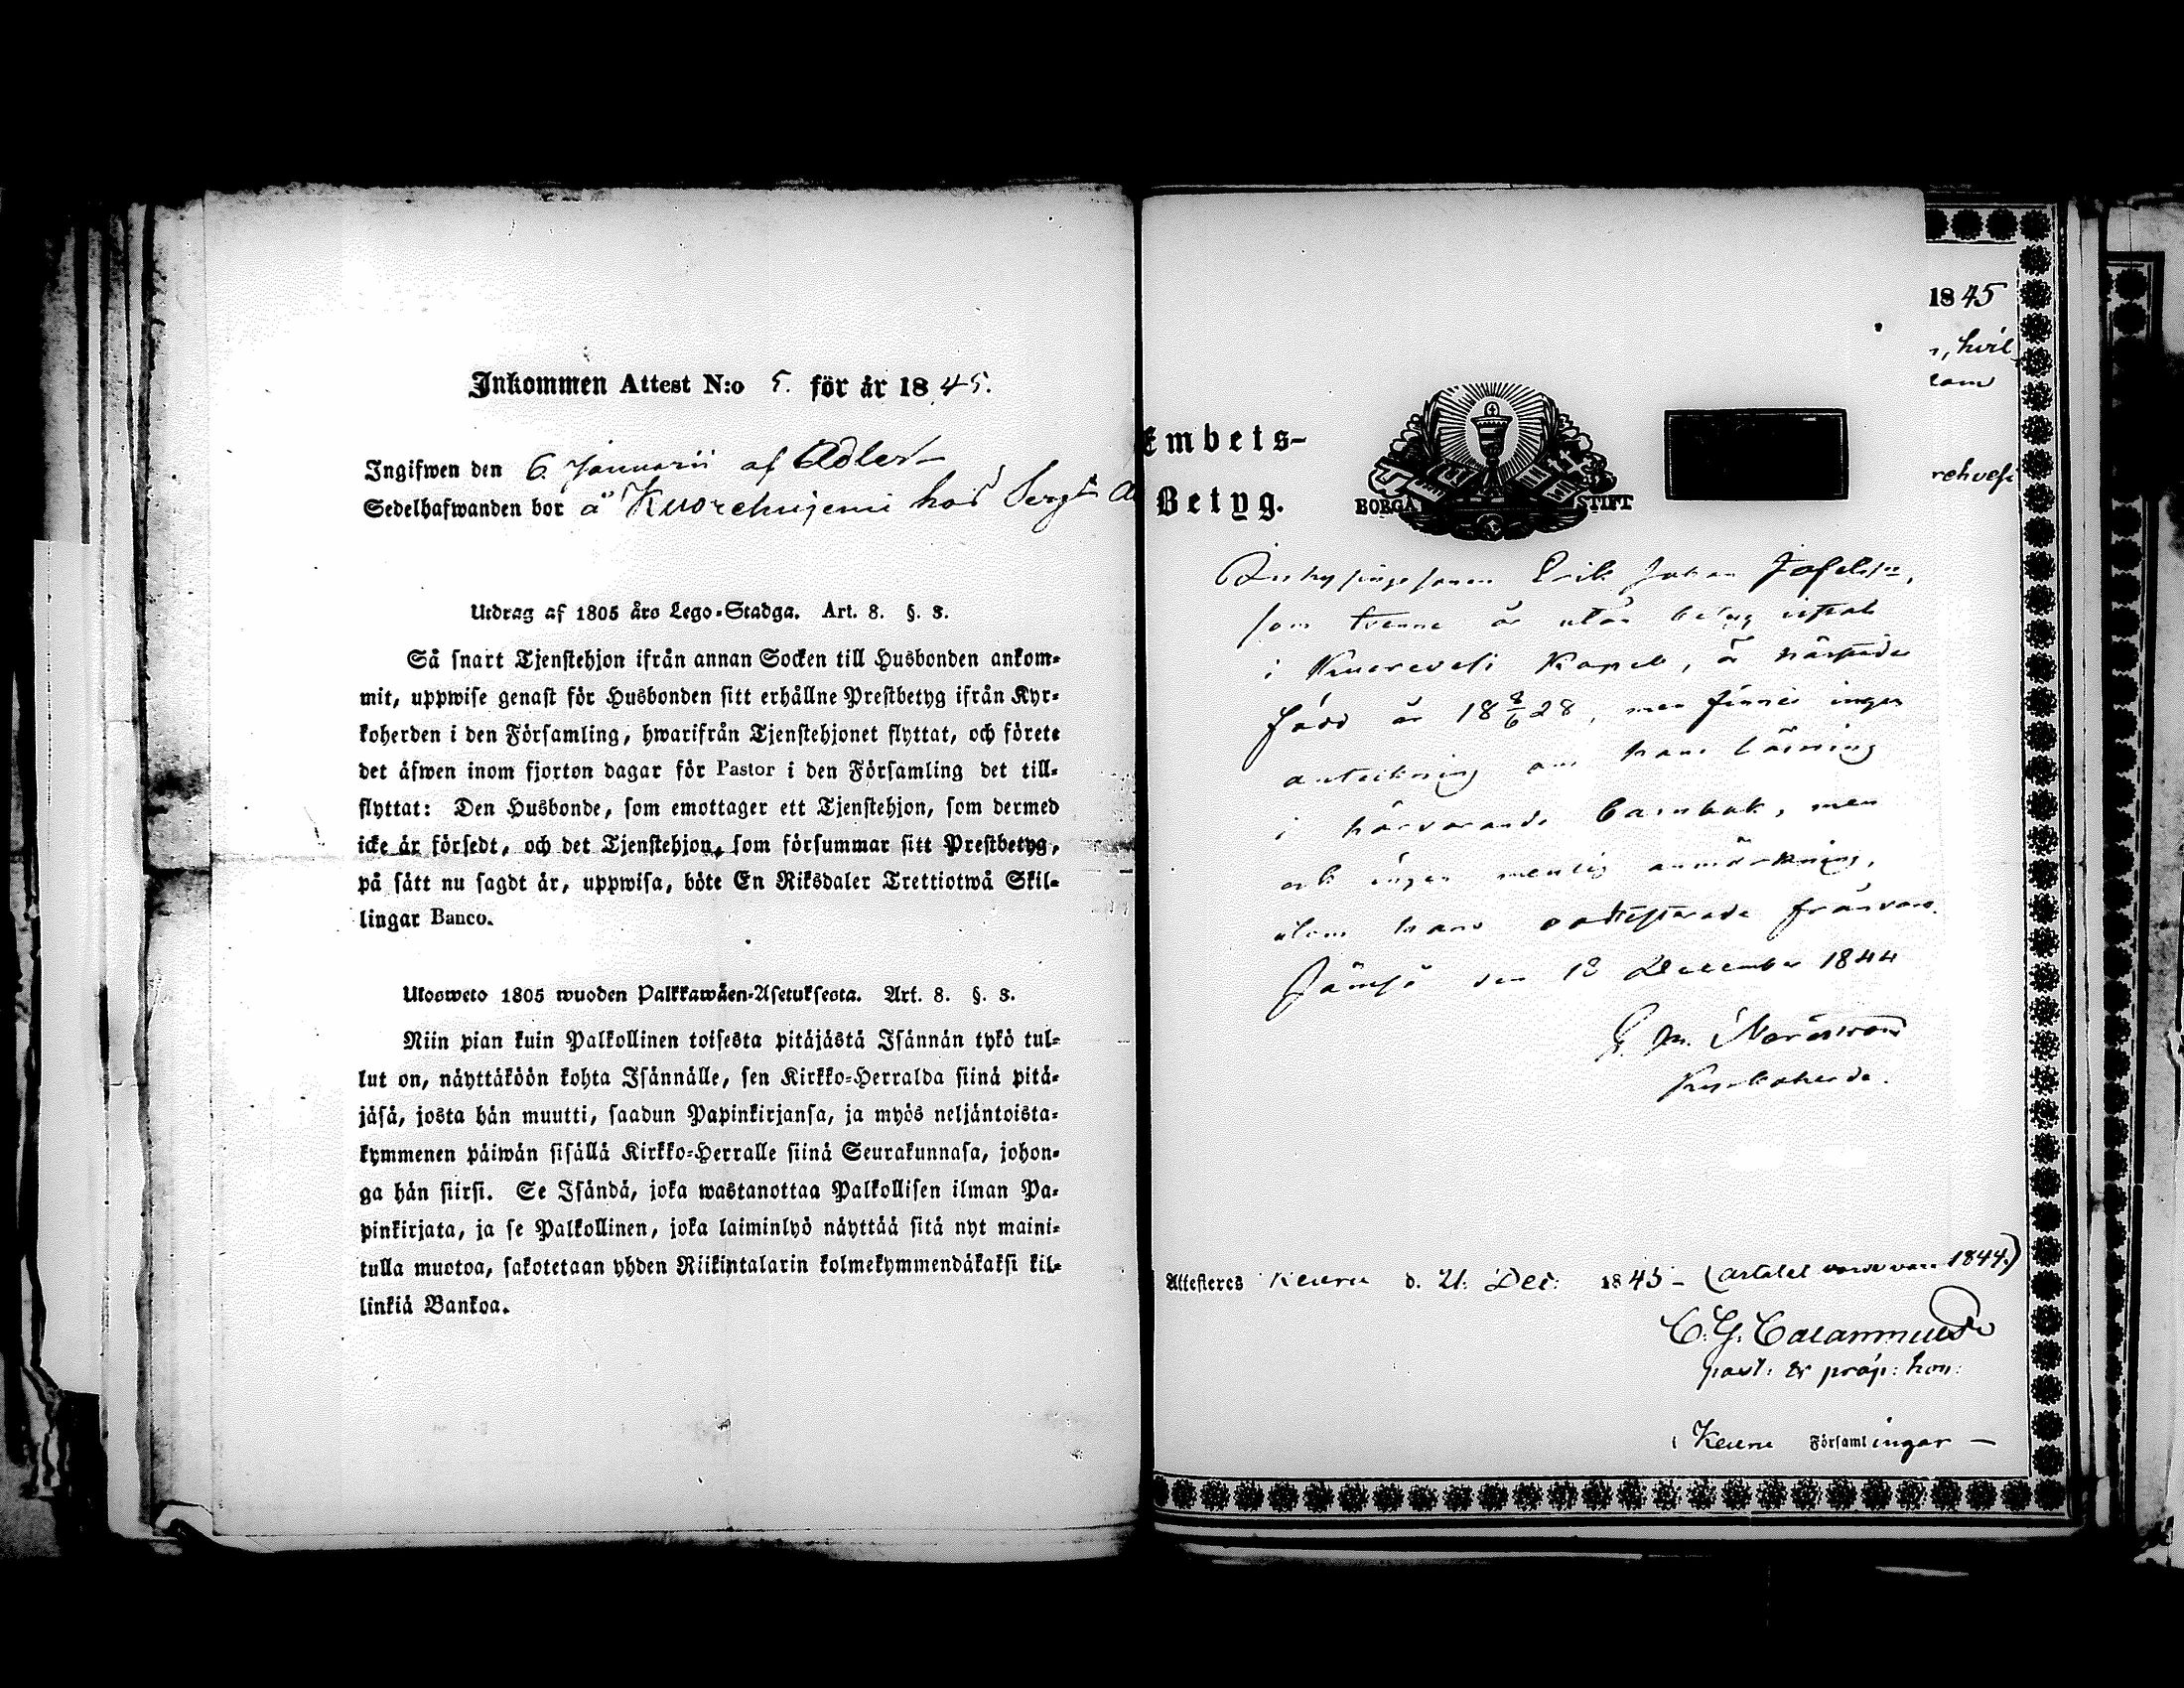 Inkommen Attest N:o 5. för år 1845.
Ingifwen den 6 Januarii af Adler
Sedelhafwanden bor å Kuorehniemi hos Serg
Utdrag af 1805 års Lego-Stadga. Art. 8. §. 3.
Så snart Tjenstehjon ifrån annan Socken till Husbonden ankom-
mit, uppwise genast för Husbonden sitt erhållne Prestbetyg ifrån Kyr-
koherden i den Församling, hwarifrån Tjenstehjonet flyttat, och förete
det äfwen inom fjorton dagar för Pastor i den Församling det till-
flyttat: Den Husbonde, som emottager ett Tjenstehjon, som dermed
icke är försedt, och det Tjenstehjon, som försummar sitt Prestbetyg,
på sätt nu sagdt är, uppwisa, böte En Riksdaler Trettiotwå Skil-
lingar Banco.
Ulosweto 1805 wuoden Palkkawäen-Asetuksesta. Art. 8. §. 3.
Niin pian kuin Palkollinen toisesta pitäjästä Isännän tykö tul-
lut on, näyttäköön kohta Isännälle, sen Kirkko-Herralda siinä pitä-
jäsä, josta hän muutti, saadun Papinkirjansa, ja myös neljäntoista-
kymmenen päiwän sisällä Kirkko-Herralle siinä Seurakunnasa, johon-
ga hän siirsi. Se Isändä, joka wastanottaa Palkollisen ilman Pa-
pinkirjata, ja se Palkollinen, joka laiminlyö näyttää sitä nyt maini-
tulla muotoa, sakotetaan yhden Riikintalarin kolmekymmendäkaksi kil-
linkiä Bankoa.
1845
, hvil
Embets-
Betyg.
BORGÅ STIFT
rehvesi
Erik Johan Josefss:n,
som tvenne år utan betyg vistats
i Kuorevesi Kapell, är härstädes
född år 18 8/6 28, men finnes ingen
anteckning om hans läsning
i härvarande barnbok, men
och ingen menlig anmärkning,
utom hans oattesterade frånvaro.
Jämsä den 18 December 1844
G. M.
Kyrkoherde.
Attesteres Keuru d. 21. Dec: 1845 - (årtalet 1844.)
C. G. Calamnius
past: & prap: hon:
i Keuru Församlingar —